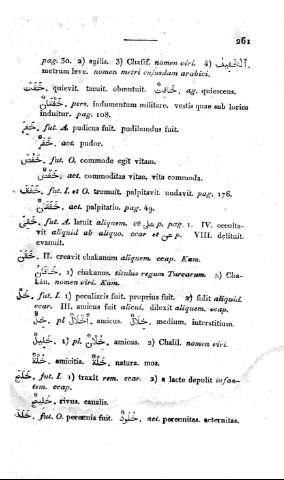 261
pag. 30. 2) agilis. 3) Chafif. nomen viri. 4) اَلْخَفِيفُ
metrum leve. nomen metri cujusdam arabici.
خَفَتَ, quievit. tacuit. obmutuit. خَافِتٌ, ag. quiescens.
خَفْتَانٌ, pers. indumentum militare. vestis quae sub lorica
induitur. pag. 108.
خَفِرَ, fut. A. pudicus fuit. pudibundus fuit.
خَفَرٌ, act. pudor.
خَفَضَ, fut. O. commode egit vitam.
خَفْضٌ, act. commoditas vitae, vita commoda.
خَفَقَ, fut. I. et O. tremuit. palpitavit. nudavit. pag. 176.
خَفَقَانٌ, act. palpitatio. pag. 49.
خَفِىَ, fut. A. latuit aliquem. c. عَلَى p. pag. 1. IV. occulta-
vit aliquid ab aliquo. ccar et عن p. VIII. delituit.
evanuit.
خَقَنَ, II. creavit chakanum aliquem. ccap. Kam.
خَاقَانٌ, 1) chakanus. titulus regum Turcarum. 2) Cha-
kan. nomen viri. Kam.
خَلَّ, fut. I. 1) peculiaris fuit. proprius fuit. 2) fidit aliquid.
ccar. III. amicus fuit alicui. dilexit aliquem. ccap.
خِلٌّ, pl. أَخْلَالٌ, amicus. خِلَالٌ, medium, interstitium.
خَلِيلٌ, 1) pl. خُلَّانٌ, amicus. 2) Chalil. nomen viri.
خُلَّةٌ, amicitia. خَلَّةٌ, natura. mos.
خَلَجَ, fut. I. 1) traxit rem. ccar. 2) a lacte depulit infan-
tem. ccap.
خَلِيجٌ, rivus. canalis.
خَلَدَ, fut. O. perennis fuit. خُلُودٌ, act. perennitas. aeternitas.